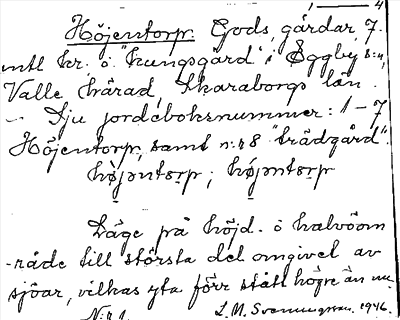 1 — 4
Höjentorp. Gods, gårdar, 7.
mtl kr. o. "kungsgård" i Eggby s:n,
Valle härad, Skaraborgs län.
– Sju jordeboksnummer: 1–7
Höjentorp, samt n:r 8 "trädgård".
højəntɔrp ; højəntɔrp
Läge på höjd o halvöom-
råde till största del omgivet av
sjöar, vilkas yta förr stått högre än nu.
N:r 1. L. M. Svenungsson. 1946.